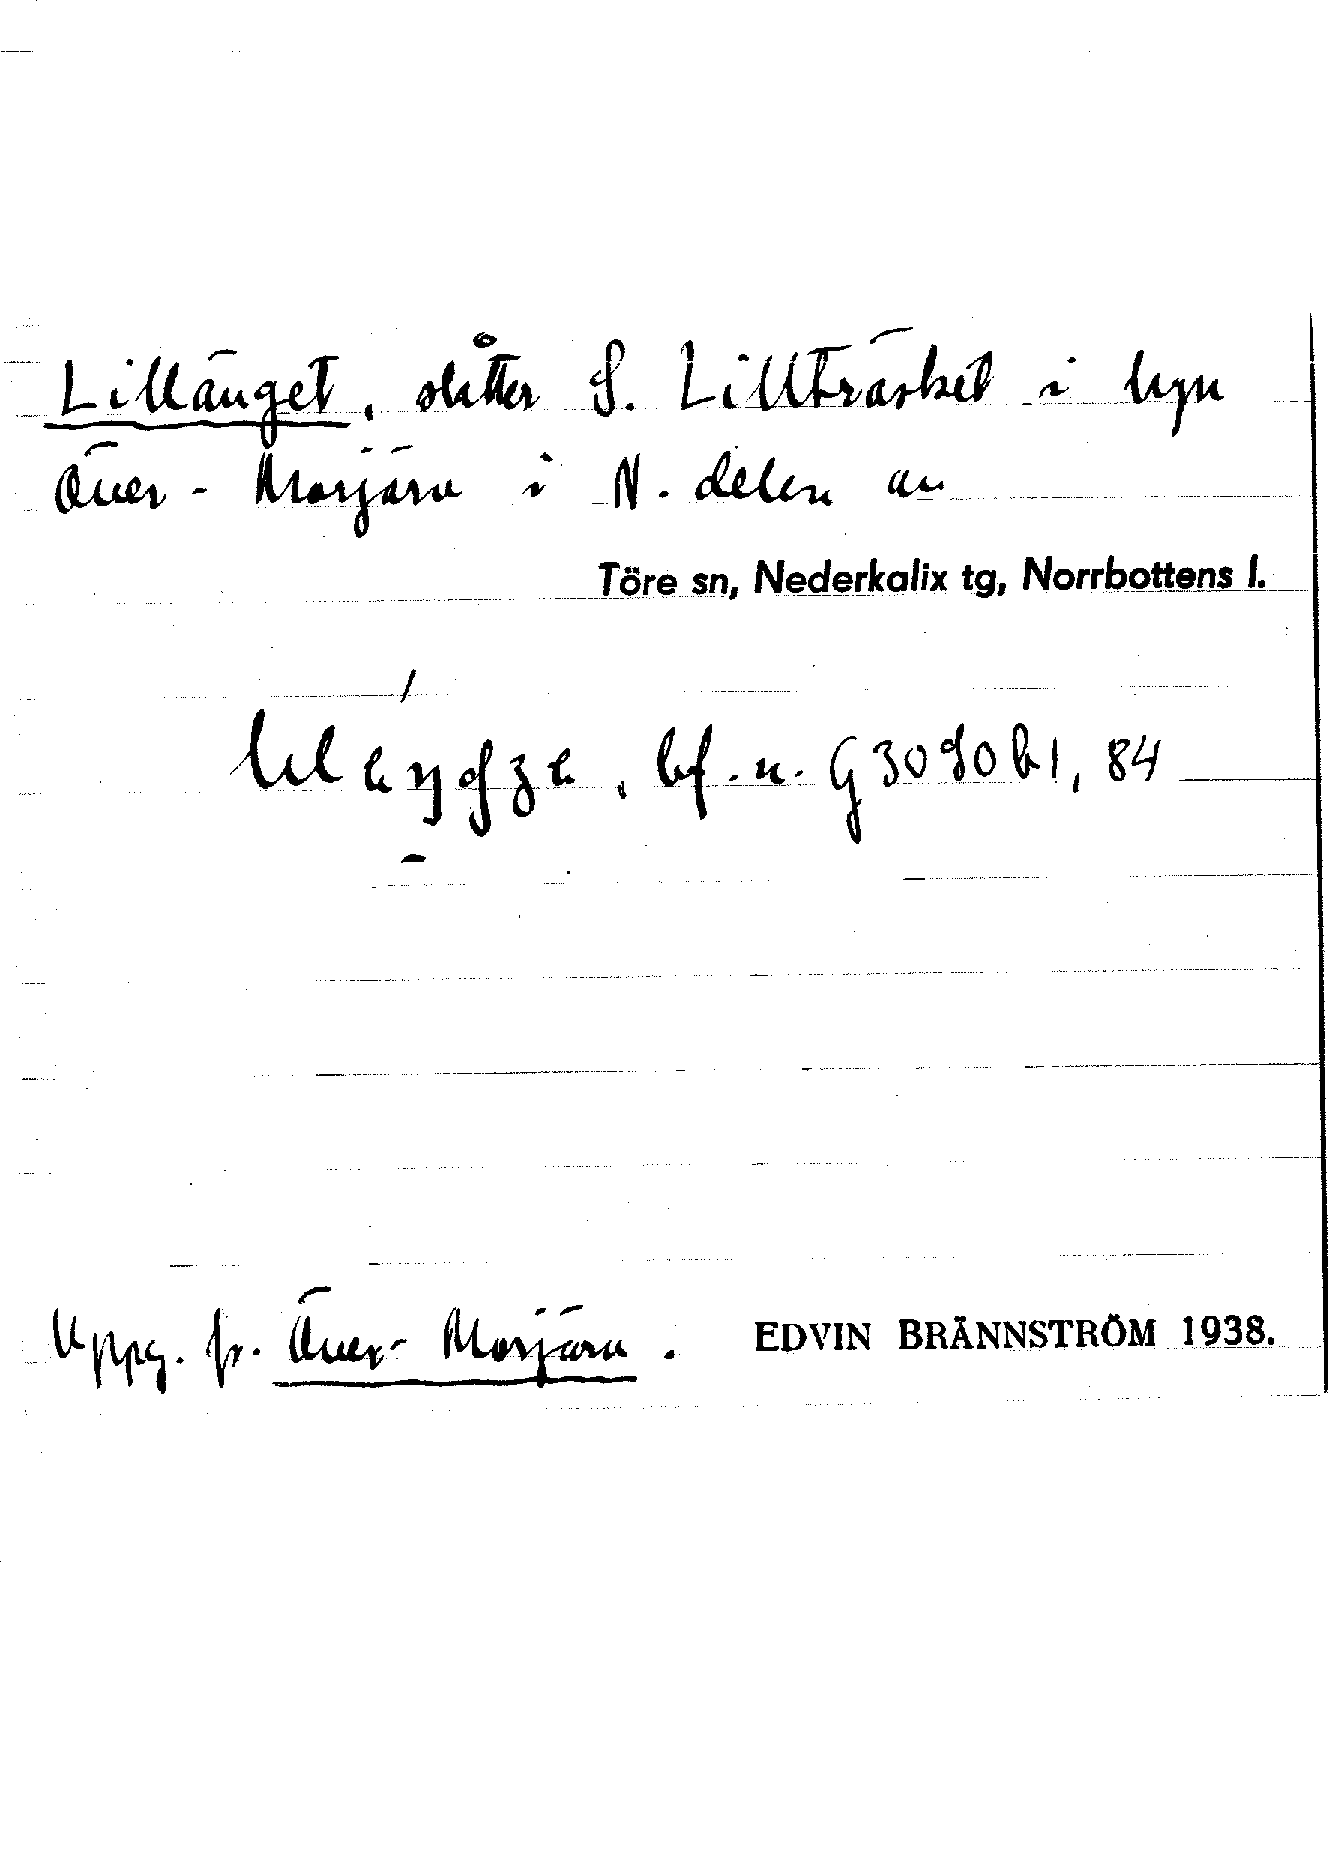 Lillänget, slåtter S. Lillträsket i byn
Över-Morjärv i N. delen av
Töre sn, Nederkalix tg, Norrbottens l.
bf. n. G3090 b1, 84
Uppg. fr. Över-Morjärv. EDVIN BRÄNNSTRÖM 1938.